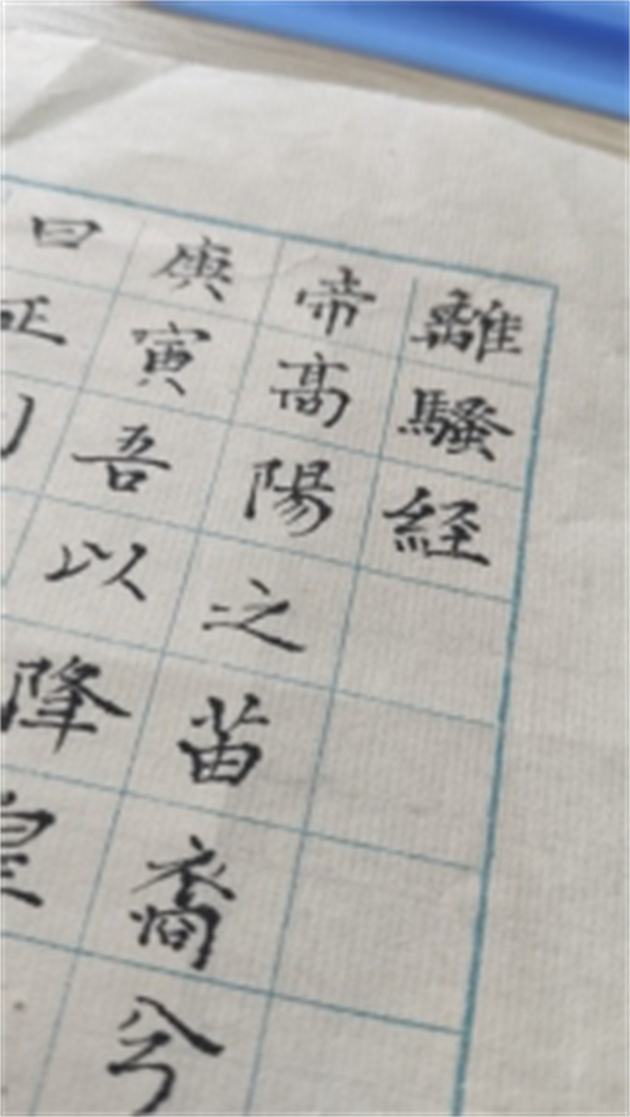 離騷経
帝高陽之苗裔兮
庚寅吾以降皇
曰正